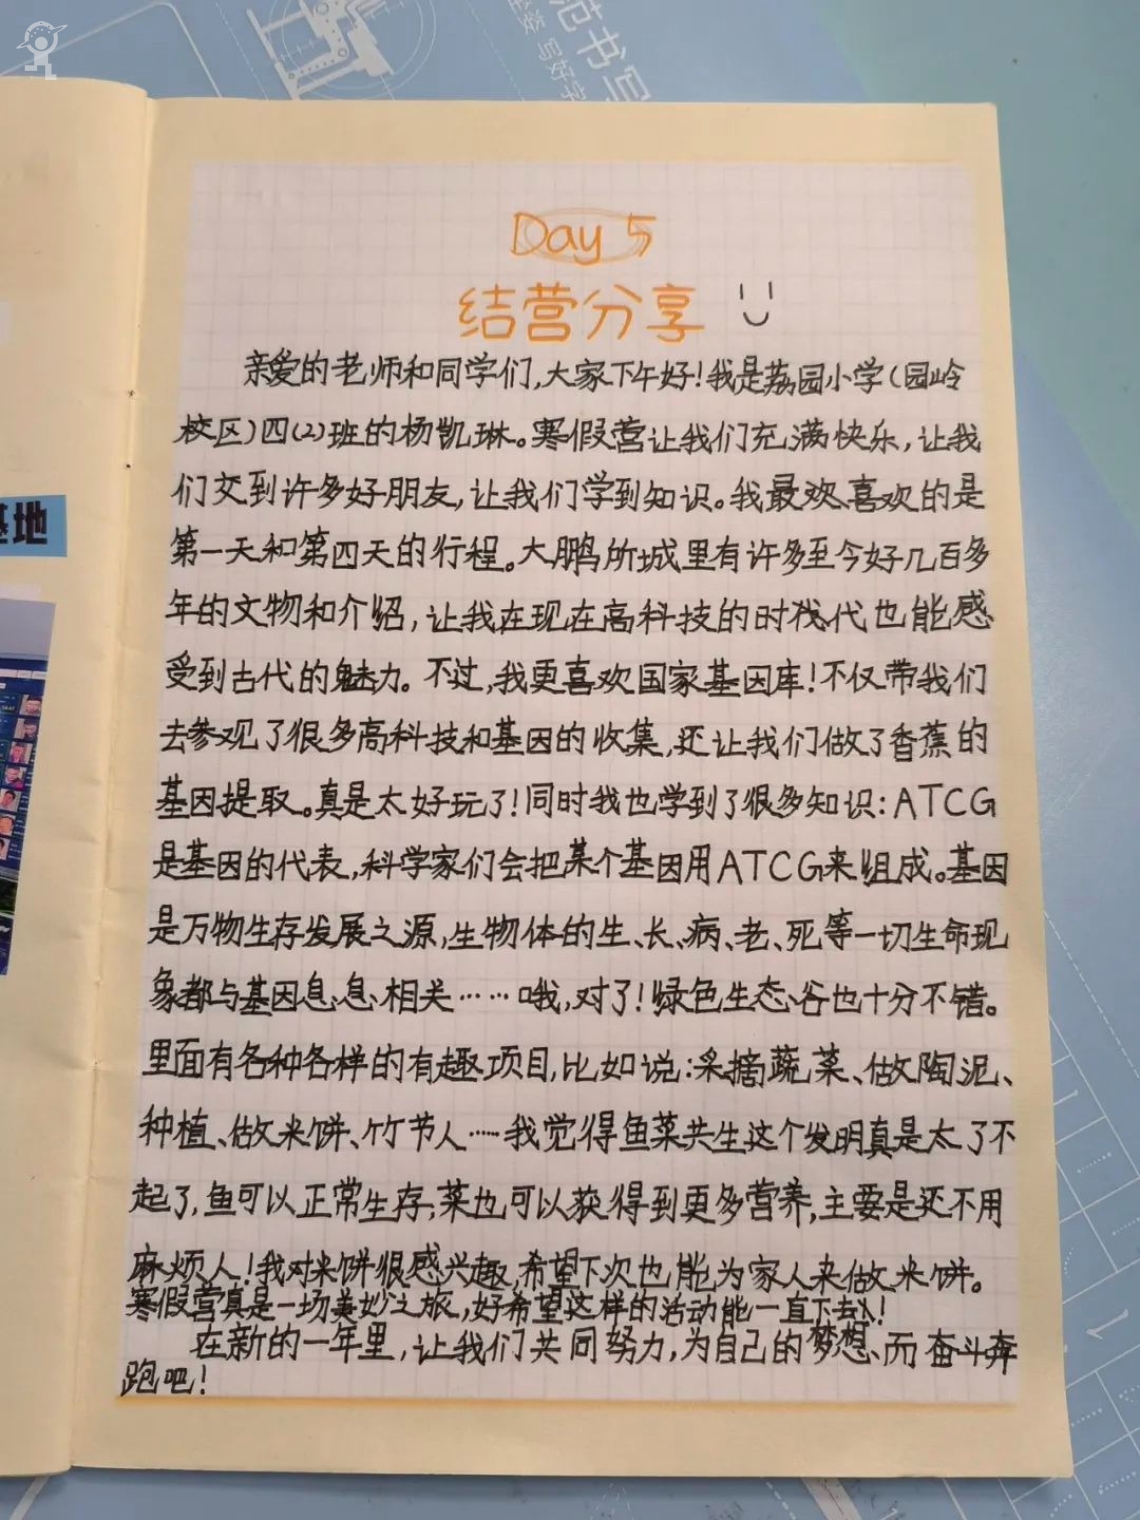 范书写
坐姿 写好字
基地
Day 5
结营分享
亲爱的老师和同学们,大家下午好!我是荔园小学(园岭
校区)四(2)班的杨凯琳。寒假营让我们充满快乐,让我
们交到许多好朋友,让我们学到知识。我最欢喜欢的是
第一天和第四天的行程。大鹏所城里有许多至今好几百多
年的文物和介绍,让我在现在高科技的时代也能感
受到古代的魅力。不过,我更喜欢国家基因库!不仅带我们
去参观了很多高科技和基因的收集,还让我们做了香蕉的
基因提取。真是太好玩了!同时我也学到了很多知识:ATCG
是基因的代表,科学家们会把某个基因用ATCG来组成。基因
是万物生存发展之源,生物体的生、长、病、老、死等一切生命现
象都与基因息息相关……哦,对了!绿色生态谷也十分不错。
里面有各种各样的有趣项目,比如说:采摘蔬菜、做陶泥、
种植、做米饼、竹节人……我觉得鱼菜共生这个发明真是太了不
起了,鱼可以正常生存,菜也可以获得到更多营养,主要是还不用
麻烦人!我对米饼很感兴趣,希望下次也能为家人来做米饼。
寒假营真是一场美妙之旅,好希望这样的活动能一直下去!
在新的一年里,让我们共同努力,为自己的梦想而奋斗奔
跑吧!